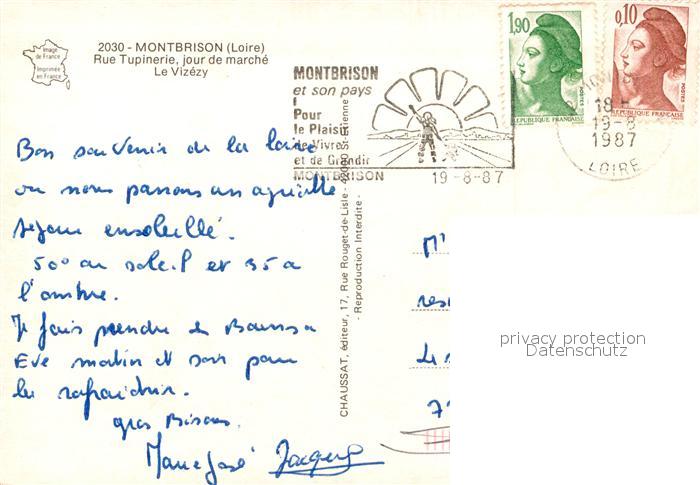 Image
de France
Imprimée
en France
2030 - MONTBRISON (Loire)
Rue Tupinerie, jour de marché
Le Vizézy
MONTBRISON
et son pays
Pour
le Plaisir
de Vivre
et de Grandir
MONTBRISON
19-8-87
1,90
POSTES
REPUBLIQUE FRANÇAISE
0,10
POSTES
REPUBLIQUE FRANÇAISE
18 H
19-8
1987
LOIRE
Bon souvenir de la loire
ou nous passons un agréable
séjour ensoleillé.
50° au soleil et 35 a
l'ombre.
Je fais prendre
Eve matin et soir pour
la rafraichir.
gros Bisous
Marie José Jacques
CHAUSSAT, éditeur, 17, Rue Rouget-de-Lisle - 42000 St-Etienne
- Reproduction Interdite -
M'
7
privacy protection
Datenschutz